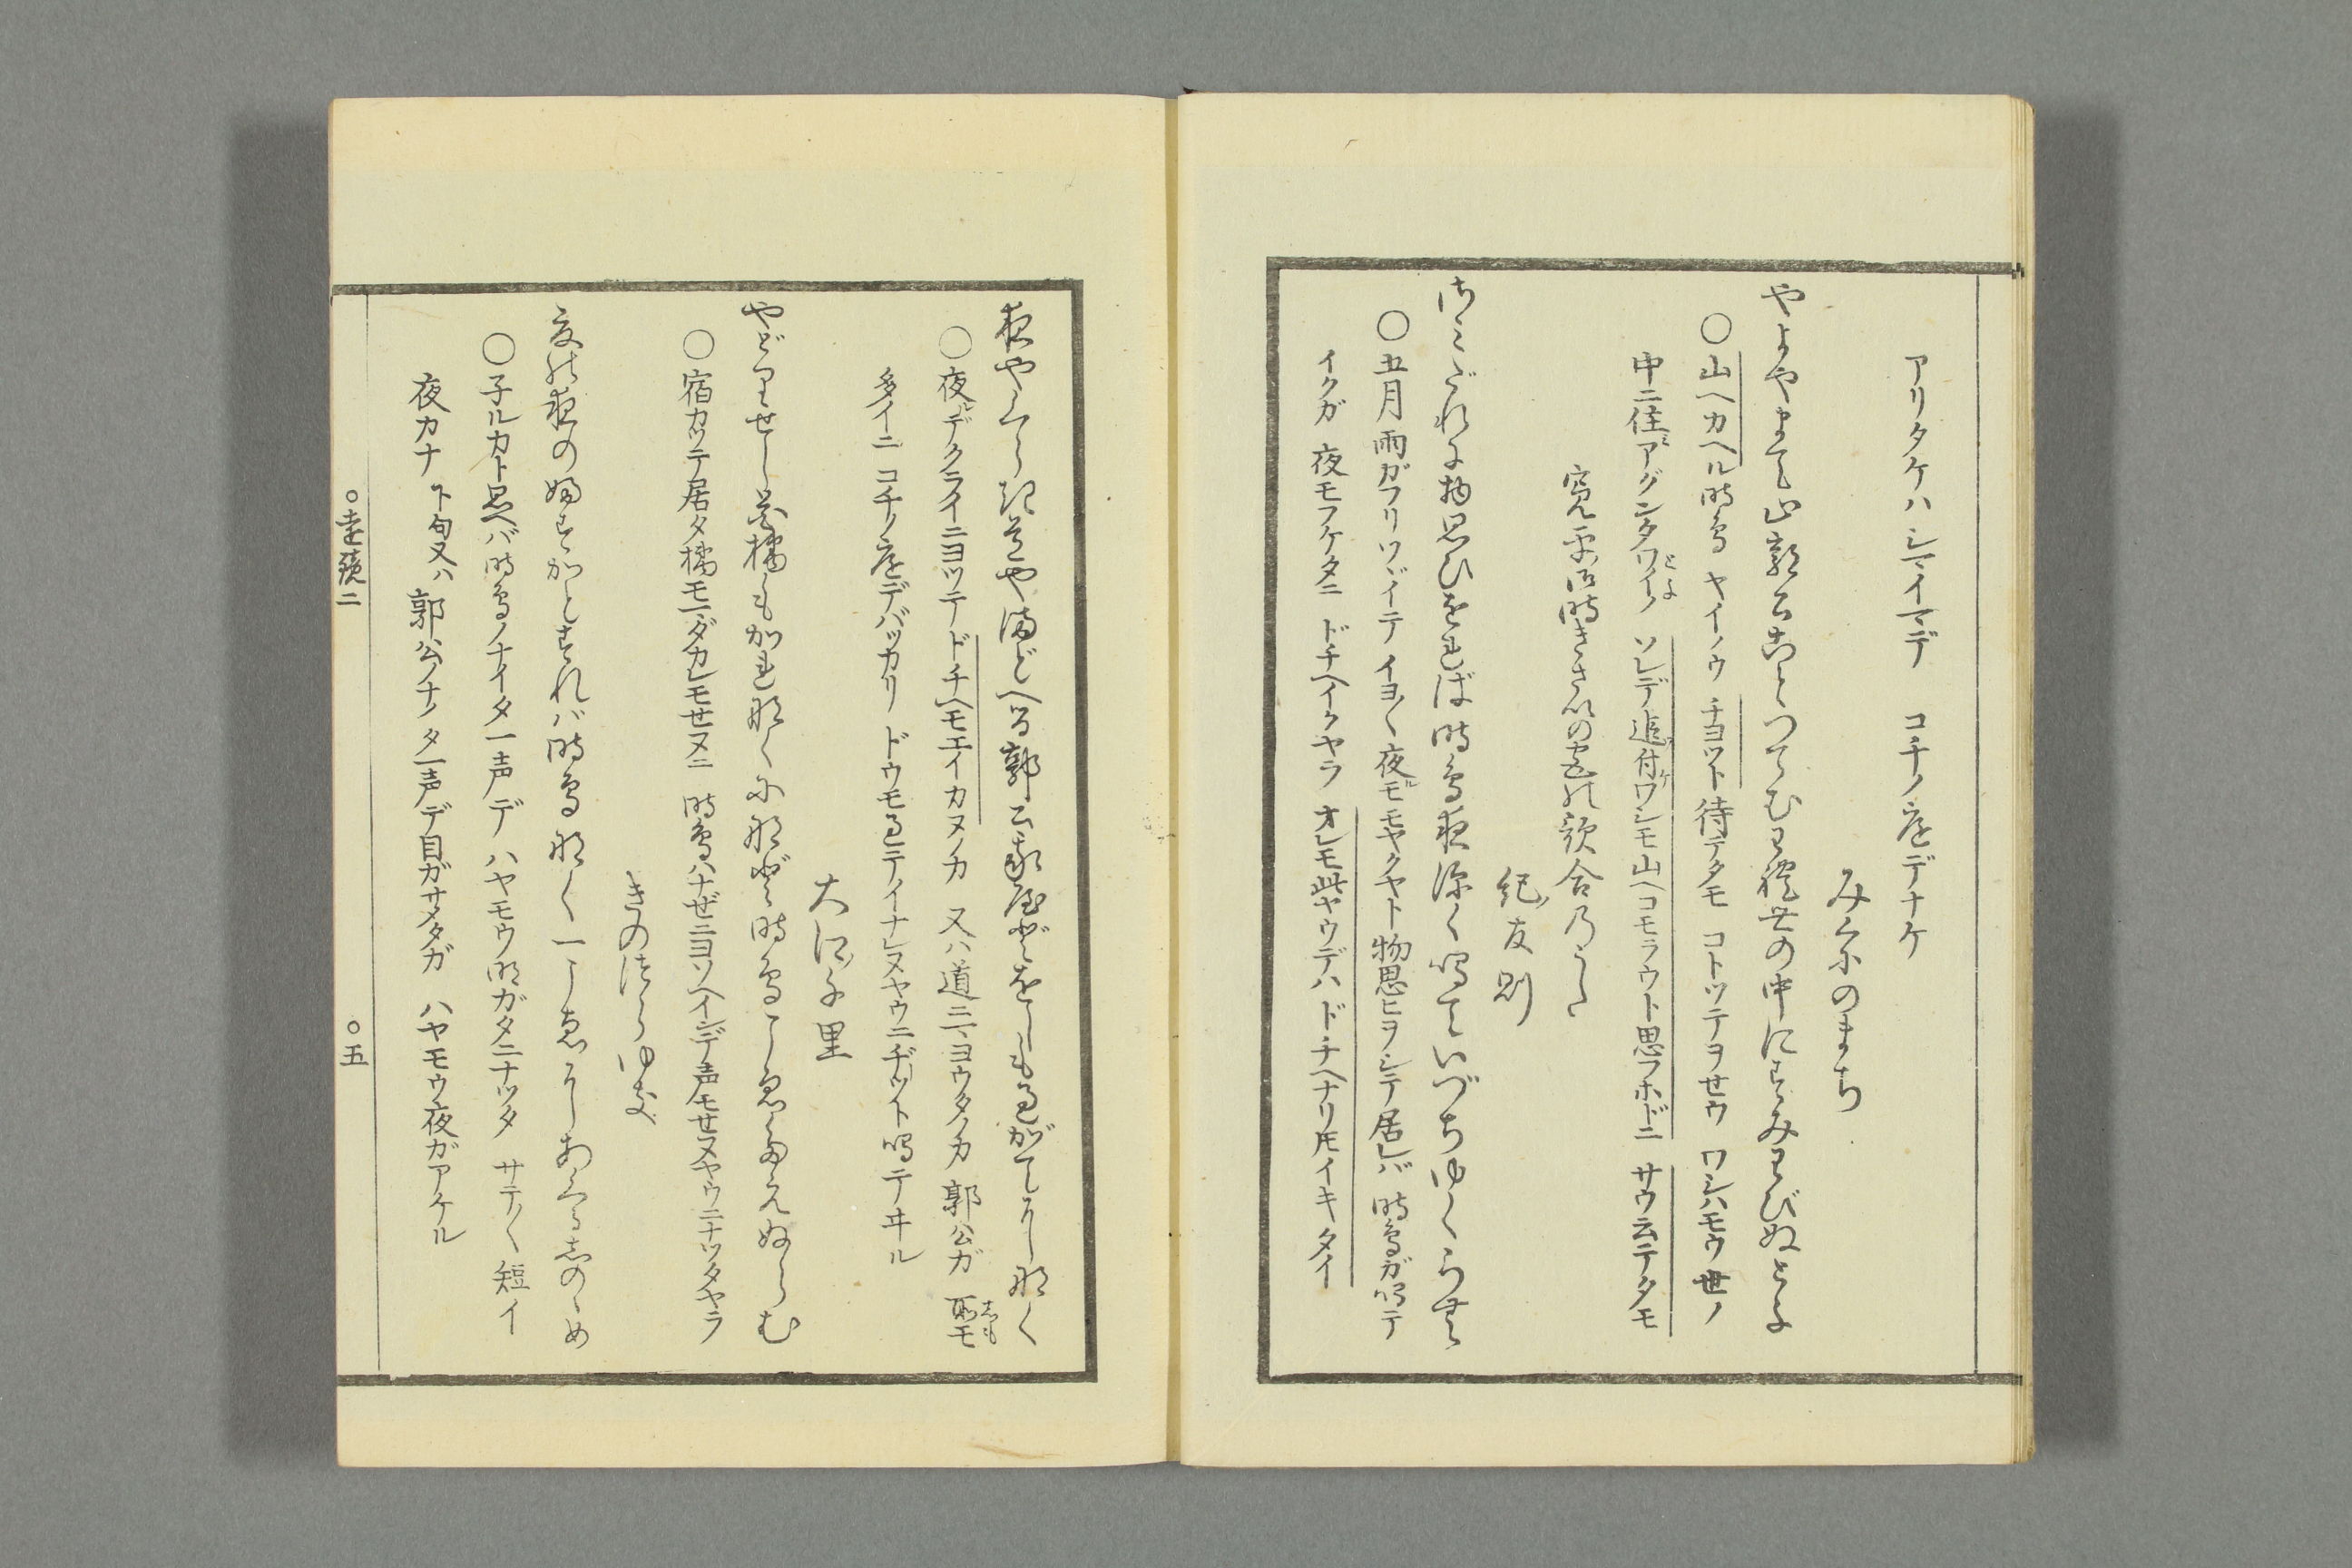 アリタケハ シマイマデ コチノ庭デナケ
みくにのまち
やよやまて山郭公ことつてむわれ世の中にすみわびぬとよ
○山ヘカヘル時鳥 ヤイノウ チヨツト待テタモ コトツテヲせウ ワシハモウ世ノ
中ニ住ミアグンタワイノとよ ソレデ追付ケワシモ山ヘコモラウト思フホドニ サウ云テタモ
寛平御時きさいの宮の歌合のうた
紀ノ友則
さみだれに物思ひをれば時鳥夜深く鳴ていづちゆくらむ
○五月雨ガフリツヾイテ イヨ〳〵夜ルモモヤクヤト物思ヒヲシテ居レバ 時鳥ガ鳴テ
イクガ 夜モフケタニ ドチヘイクヤラ オレモ此ヤウデハ ドチヘナリトモイキタイ
夜やくらき道やまどへる郭公我屋どをしも過がてになく
○夜ルデクライニヨツテ ドチヘモエイカヌノカ 又ハ道ニヨウタノカ 郭公ガ 所モしも
多イニ コチノ庭デバツカリ ドウモ過テイナレヌヤウニ ヂツト鳴テヰル
大江ノ千里
やどりせし花橘もかれなくになど時鳥こゑたえぬらむ
○宿カツテ居タ橘モマダカレモせヌニ 時鳥ハナゼニヨソヘインデ声モせヌヤウニナツタヤラ
きのつらゆき
夏の夜のふすかとすれバ時鳥なく一こゑにあくるしのゝめ
○子ルカト思ヘバ時鳥ノナイタ一声デ ハヤモウ明ガタニナツタ サテ〳〵短イ
夜カナ 下句又ハ 郭公ノナイタ一声デ目ガサメタガ ハヤモウ夜ガアケル
○遠鏡二
○五